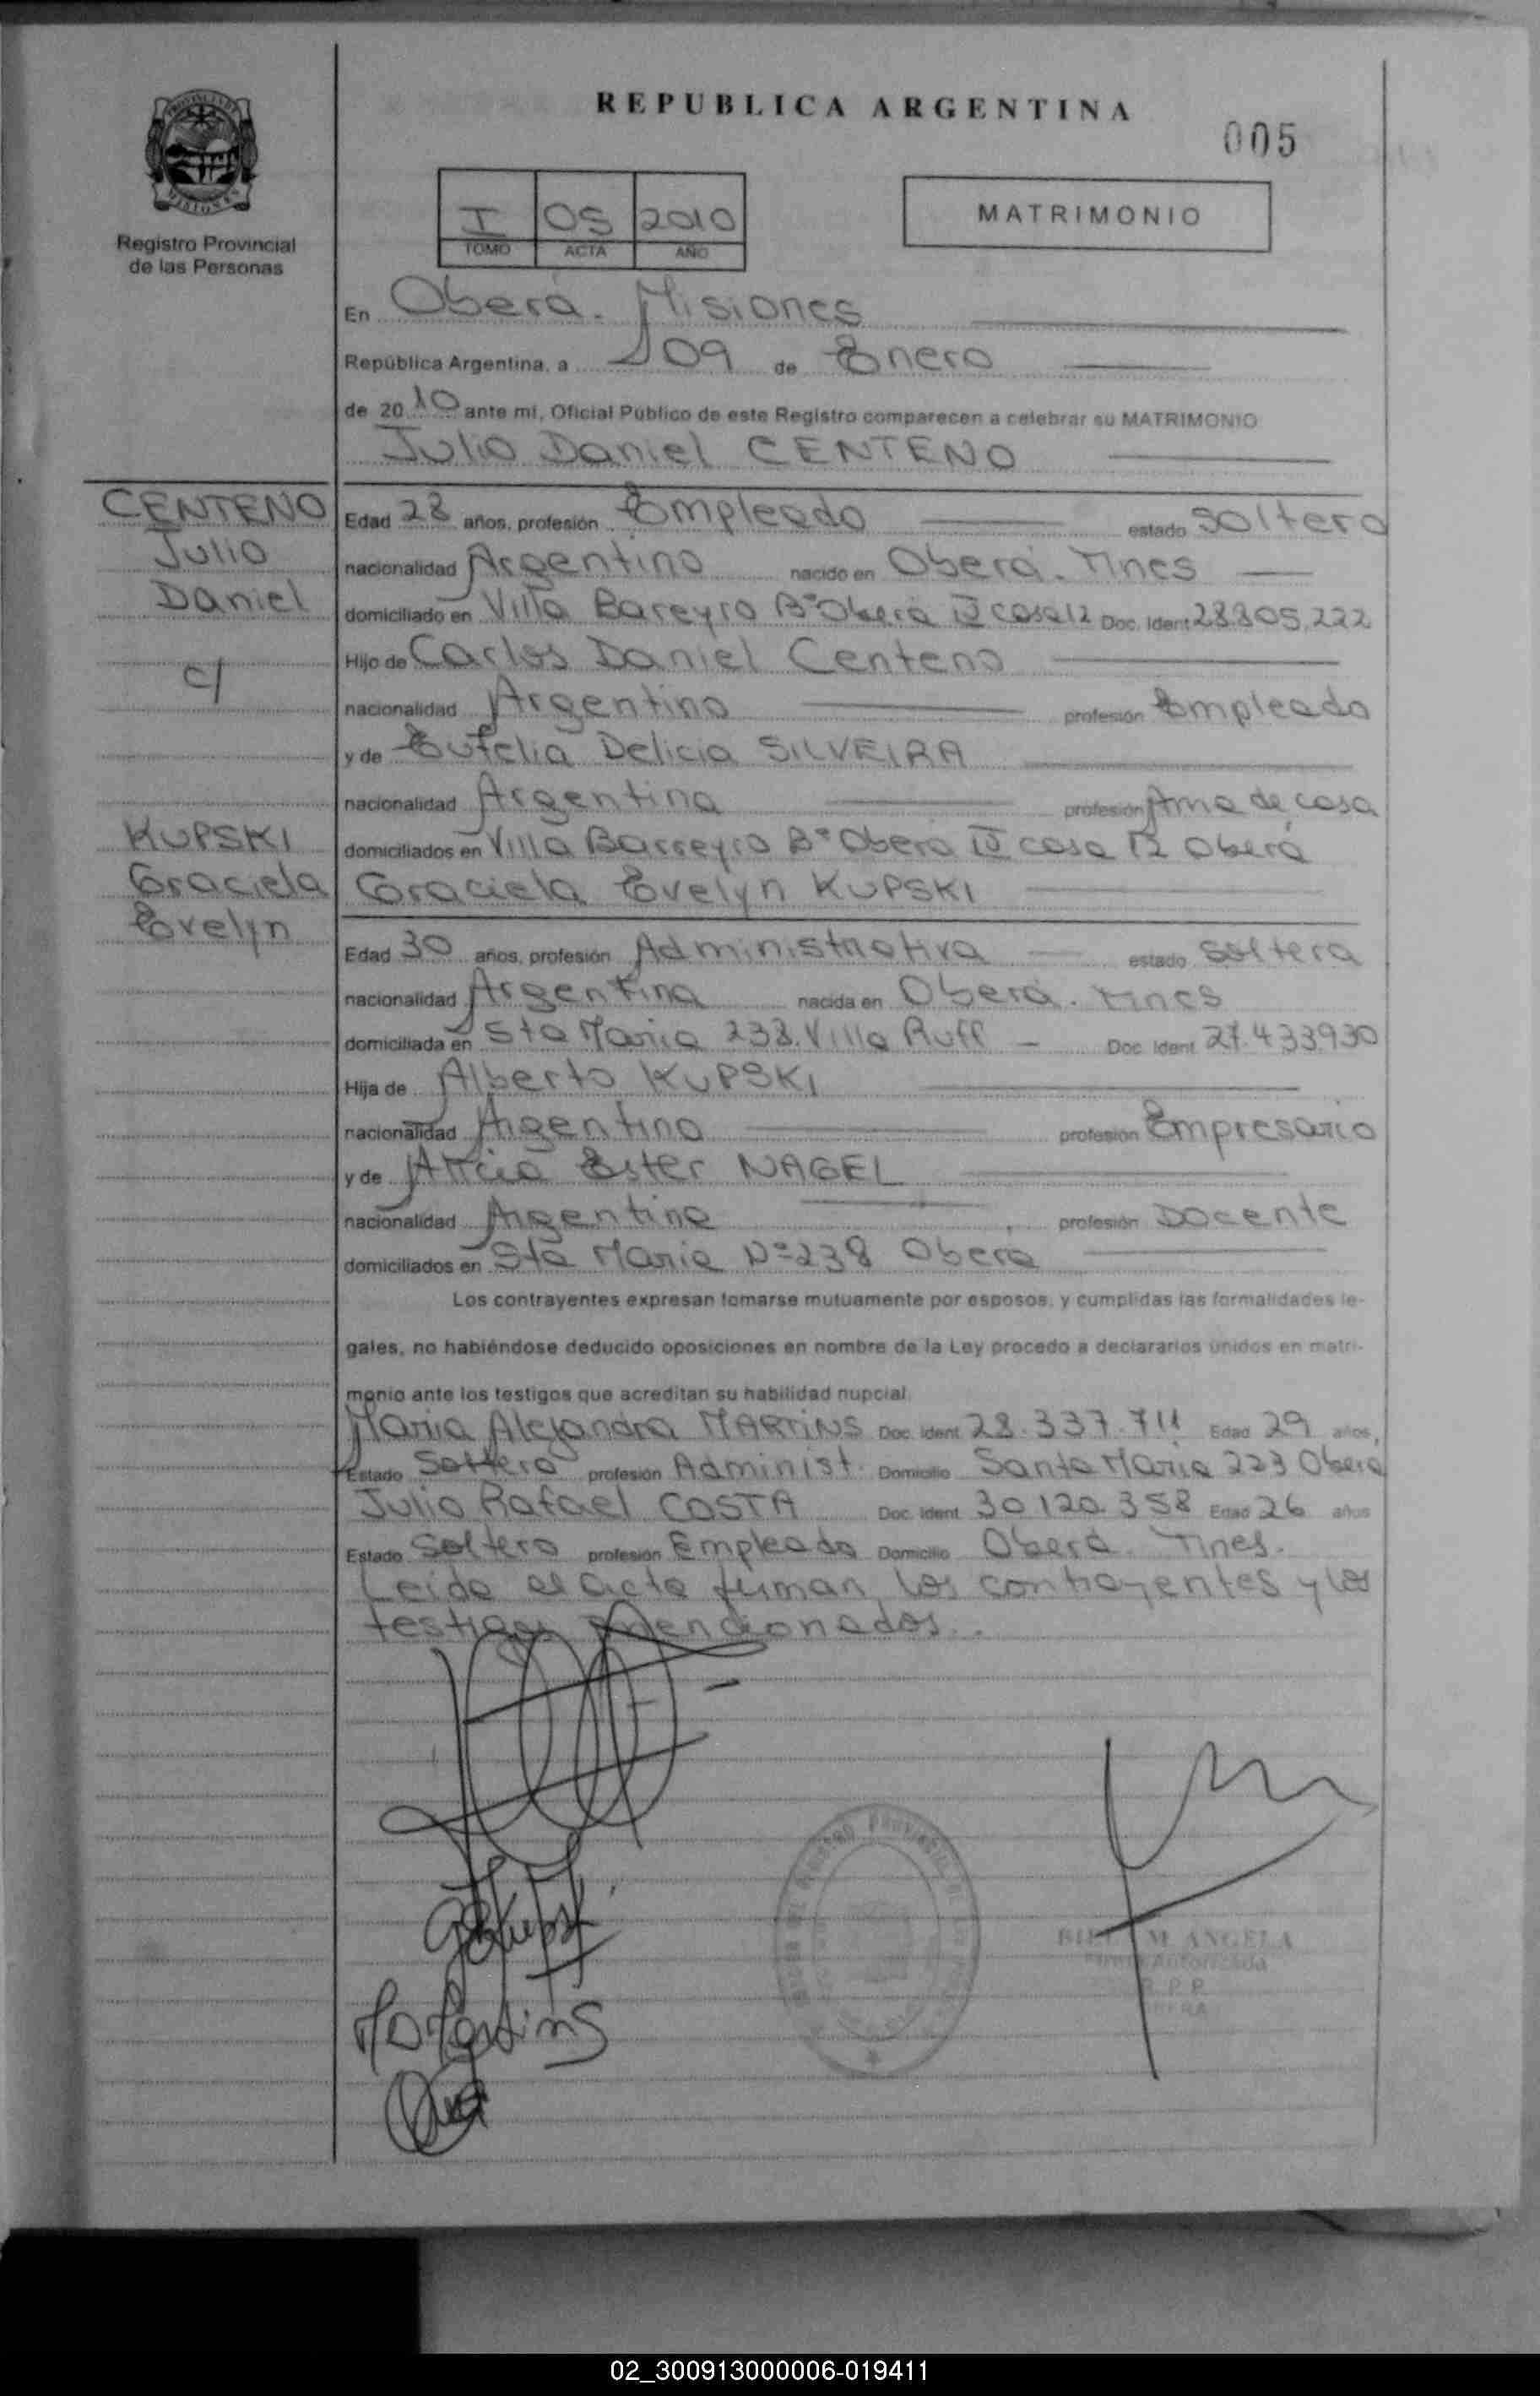 REPUBLICA ARGENTINA
005
I 05 2010
TOMO ACTA AÑO
MATRIMONIO
MISIONES
Registro Provincial
de las Personas
En Oberá. Misiones
República Argentina, a 09 de Enero
de 20 10 ante mi, Oficial Público de este Registro comparecen a celebrar su MATRIMONIO
Julio Daniel CENTENO
CENTENO
Julio
Daniel
c/
KUPSKI
Graciela
Evelyn
Edad 28 años, profesión Empleado estado Soltero
nacionalidad Argentino nacido en Oberá. Mnes
domiciliado en Villa Bareyro B° Oberá IV casa 12 Doc. Ident 28.805.222
Hijo de Carlos Daniel Centeno
nacionalidad Argentino profesión Empleado
y de Eufelia Delicia SILVEIRA
nacionalidad Argentina profesión Ama de casa
domiciliados en Villa Barreyro B° Oberá IV casa 12 Oberá
Graciela Evelyn KUPSKI
Edad 30 años, profesión Administrativa estado soltera
nacionalidad Argentina nacida en Oberá. Mnes
domiciliada en Sta Maria 238. Villa Ruff Doc. Ident 27.433.930
Hija de Alberto KUPSKI
nacionalidad Argentino profesión Empresario
y de Ester NAGEL
nacionalidad Argentina profesión Docente
domiciliados en Sta Maria N° 238 Oberá
Los contrayentes expresan tomarse mutuamente por esposos, y cumplidas las formalidades le-
gales, no habiéndose deducido oposiciones en nombre de la Ley procedo a declararlos unidos en matri-
monio ante los testigos que acreditan su habilidad nupcial
Maria Alejandra MARTINS Doc. Ident 28.337.711 Edad 29 años,
Estado Soltero profesión Administ. Domicilio Santa Maria 223 Oberá
Julio Rafael COSTA Doc. Ident 30.120.358 Edad 26 años
Estado Soltero profesión Empleado Domicilio Oberá. Mnes.
Leida el acta firman los contrayentes y los
testigos mencionados..
M. ANGELA
Firma Autorizada
R.P.P.
OBERA
02_300913000006-019411